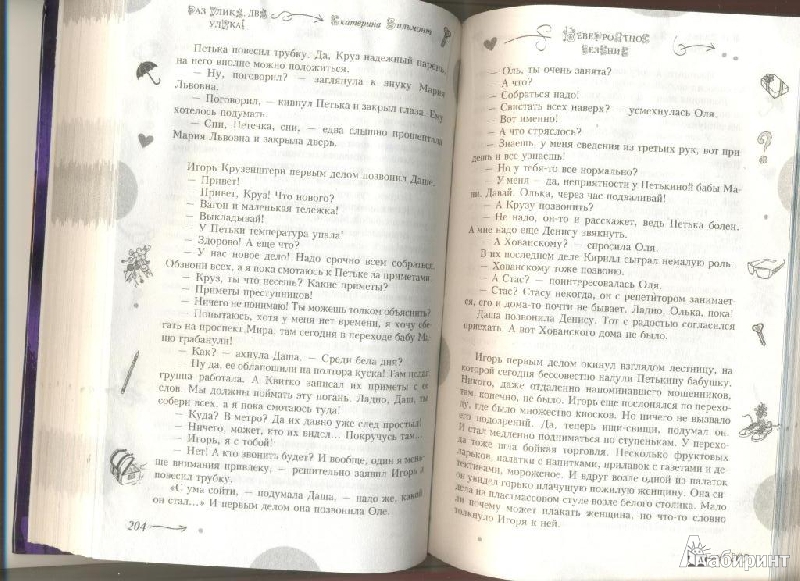 РАЗ УЛИКА, ДВА
УЛИКА!
Екатерина Вильмонт
Петька повесил трубку. Да, Круз надежный парень,
на него вполне можно положиться.
— Ну, поговорил? — заглянула к внуку Мария
Львовна.
— Поговорил, — кивнул Петька и закрыл глаза. Ему
хотелось подумать.
— Спи, Петечка, спи, — едва слышно прошептала
Мария Львовна и закрыла дверь.
Игорь Крузенштерн первым делом позвонил Даше.
— Привет!
Привет, Круз! Что нового?
— Вагон и маленькая тележка!
— Выкладывай!
У Петьки температура упала!
— Здорово! А еще что?
— У нас новое дело! Надо срочно всем собраться.
Обзвони всех, а я пока смотаюсь к Петьке за приметами.
— Круз, ты что несешь? Какие приметы?
— Приметы преступников!
— Ничего не понимаю! Ты можешь толком объяснить?
Попытаюсь, хотя у меня нет времени, я хочу сбе-
гать на проспект Мира, там сегодня в переходе бабу Ма-
ню грабанули!
— Как? — ахнула Даша. — Среди бела дня?
Ну да, ее облапошили на полтора куска! Там целая
группа работала. А Квитко записал их приметы с ее
слов. Мы должны поймать эту погань. Ладно, Даш, ты
собери всех, а я пока смотаюсь туда!
— Куда? В метро? Да их давно уже след простыл!
— Ничего, может, кто их видел... Покручусь там...
— Игорь, я с тобой!
— Нет! А кто звонить будет? И вообще, один я мень-
ше внимания привлеку, — решительно заявил Игорь и
повесил трубку.
«С ума сойти, — подумала Даша, — надо же, какой
он стал...» И первым делом она позвонила Оле.
204
НЕВЕРОЯТНОЕ
ВЕЗЕНИЕ
— Оль, ты очень занята?
А что?
— Собраться надо!
— Свистать всех наверх? усмехнулась Оля.
— Вот именно!
— А что стряслось?
— Знаешь, у меня сведения из третьих рук, вот при
дешь и все узнаешь!
— Но у тебя-то все нормально?
У меня — да, неприятности у Петькиной бабы Ма-
ни. Давай, Олька, через час подваливай!
— А Крузу позвонить?
— Не надо, он-то и расскажет, ведь Петька болен.
А мне надо еще Денису звякнуть.
— А Хованскому? — спросила Оля.
В их последнем деле Кирилл сыграл немалую роль
— Хованскому тоже позвоню.
— А Стас? — поинтересовалась Оля.
— Стас? Стасу некогда, он с репетитором занимает
ся, его и дома-то почти не бывает. Ладно, Олька, пока!
Даша позвонила Денису. Тот с радостью согласился
приехать. А вот Хованского дома не было.
Игорь первым делом окинул взглядом лестницу, на
которой сегодня бессовестно надули Петькину бабушку.
Никого, даже отдаленно напоминавшего мошенников,
там, конечно, не было. Игорь еще послонялся по перехо-
ду, где было множество киосков. Но ничего не вызвало
его подозрений. Да, теперь ищи-свищи, подумал он.
И стал медленно подниматься по ступенькам. У перехо-
да тоже шла бойкая торговля. Несколько фруктовых
ларьков, палатки с напитками, прилавок с газетами и де-
тективами, мороженое. И вдруг возле одной из палаток
он увидел горько плачущую пожилую женщину. Она си-
дела на пластмассовом стуле возле белого столика. Мало
ли почему может плакать женщина, но что-то словно
толкнуло Игоря к ней.
Лабиринт